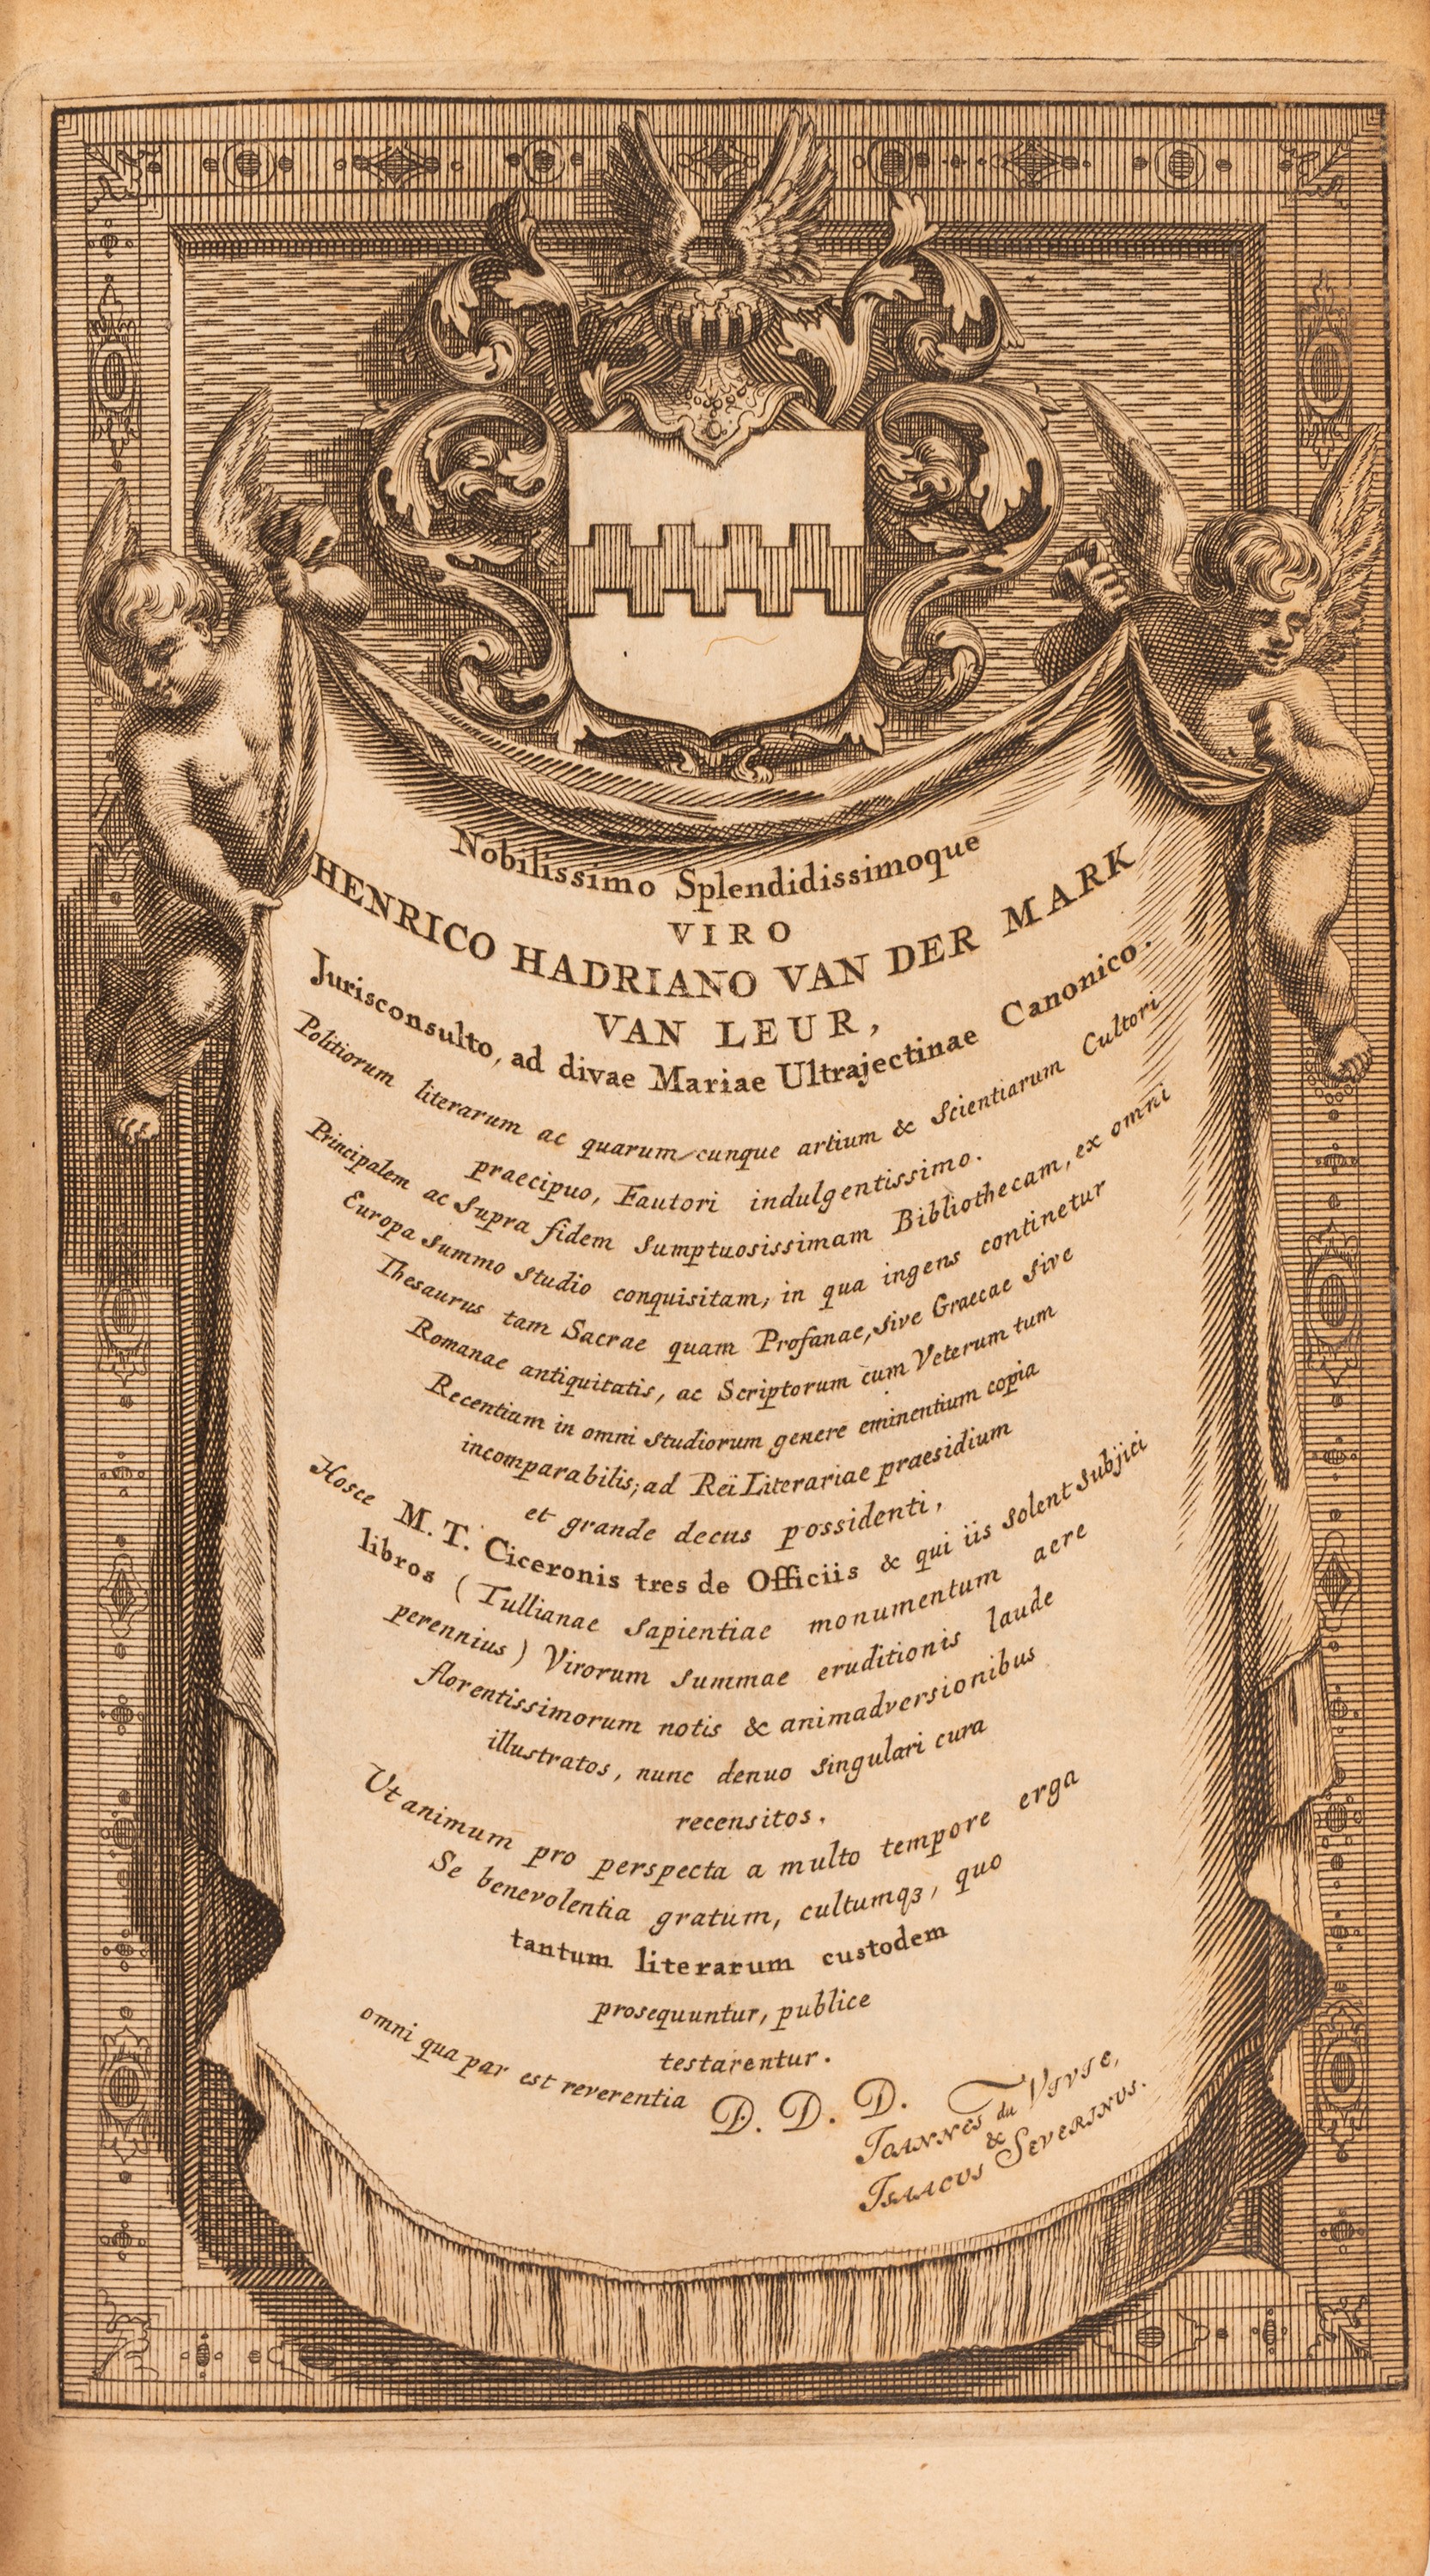 Nobilissimo Splendidissimoque
VIRO
HENRICO HADRIANO VAN DER MARK
VAN LEUR,
Jurisconsulto, ad divae Mariae Ultrajectinae Canonico.
Politiorum literarum ac quarum cunque artium & Scientiarum Cultori
praecipuo, Fautori indulgentissimo.
Principalem ac Supra fidem Sumptuosissimam Bibliothecam, ex omni
Europa Summo Studio conquisitam, in qua ingens continetur
Thesaurus tam Sacrae quam Profanae, sive Graecae Sive
Romanae antiquitatis, ac Scriptorum cum Veterum tum
Recentium in omni Studiorum genere eminentium copia
incomparabilis; ad Reï Literariae praesidium
et grande decus possidenti,
Hosce M. T. Ciceronis tres de Officiis & qui iis Solent Subjici
libros (Tullianae Sapientiae monumentum aere
perennius) Virorum Summae eruditionis laude
florentissimorum notis & animadversionibus
illustratos, nunc denuo Singulari cura
recensitos.
Ut animum pro perspecta a multo tempore erga
Se benevolentia gratum, cultumqꝫ, quo
tantum literarum custodem
prosequuntur, publice
testarentur.
omni qua par est reverentia D. D. D.
IOANNES du VIVIE,
&
ISAACUS SEVERINUS.